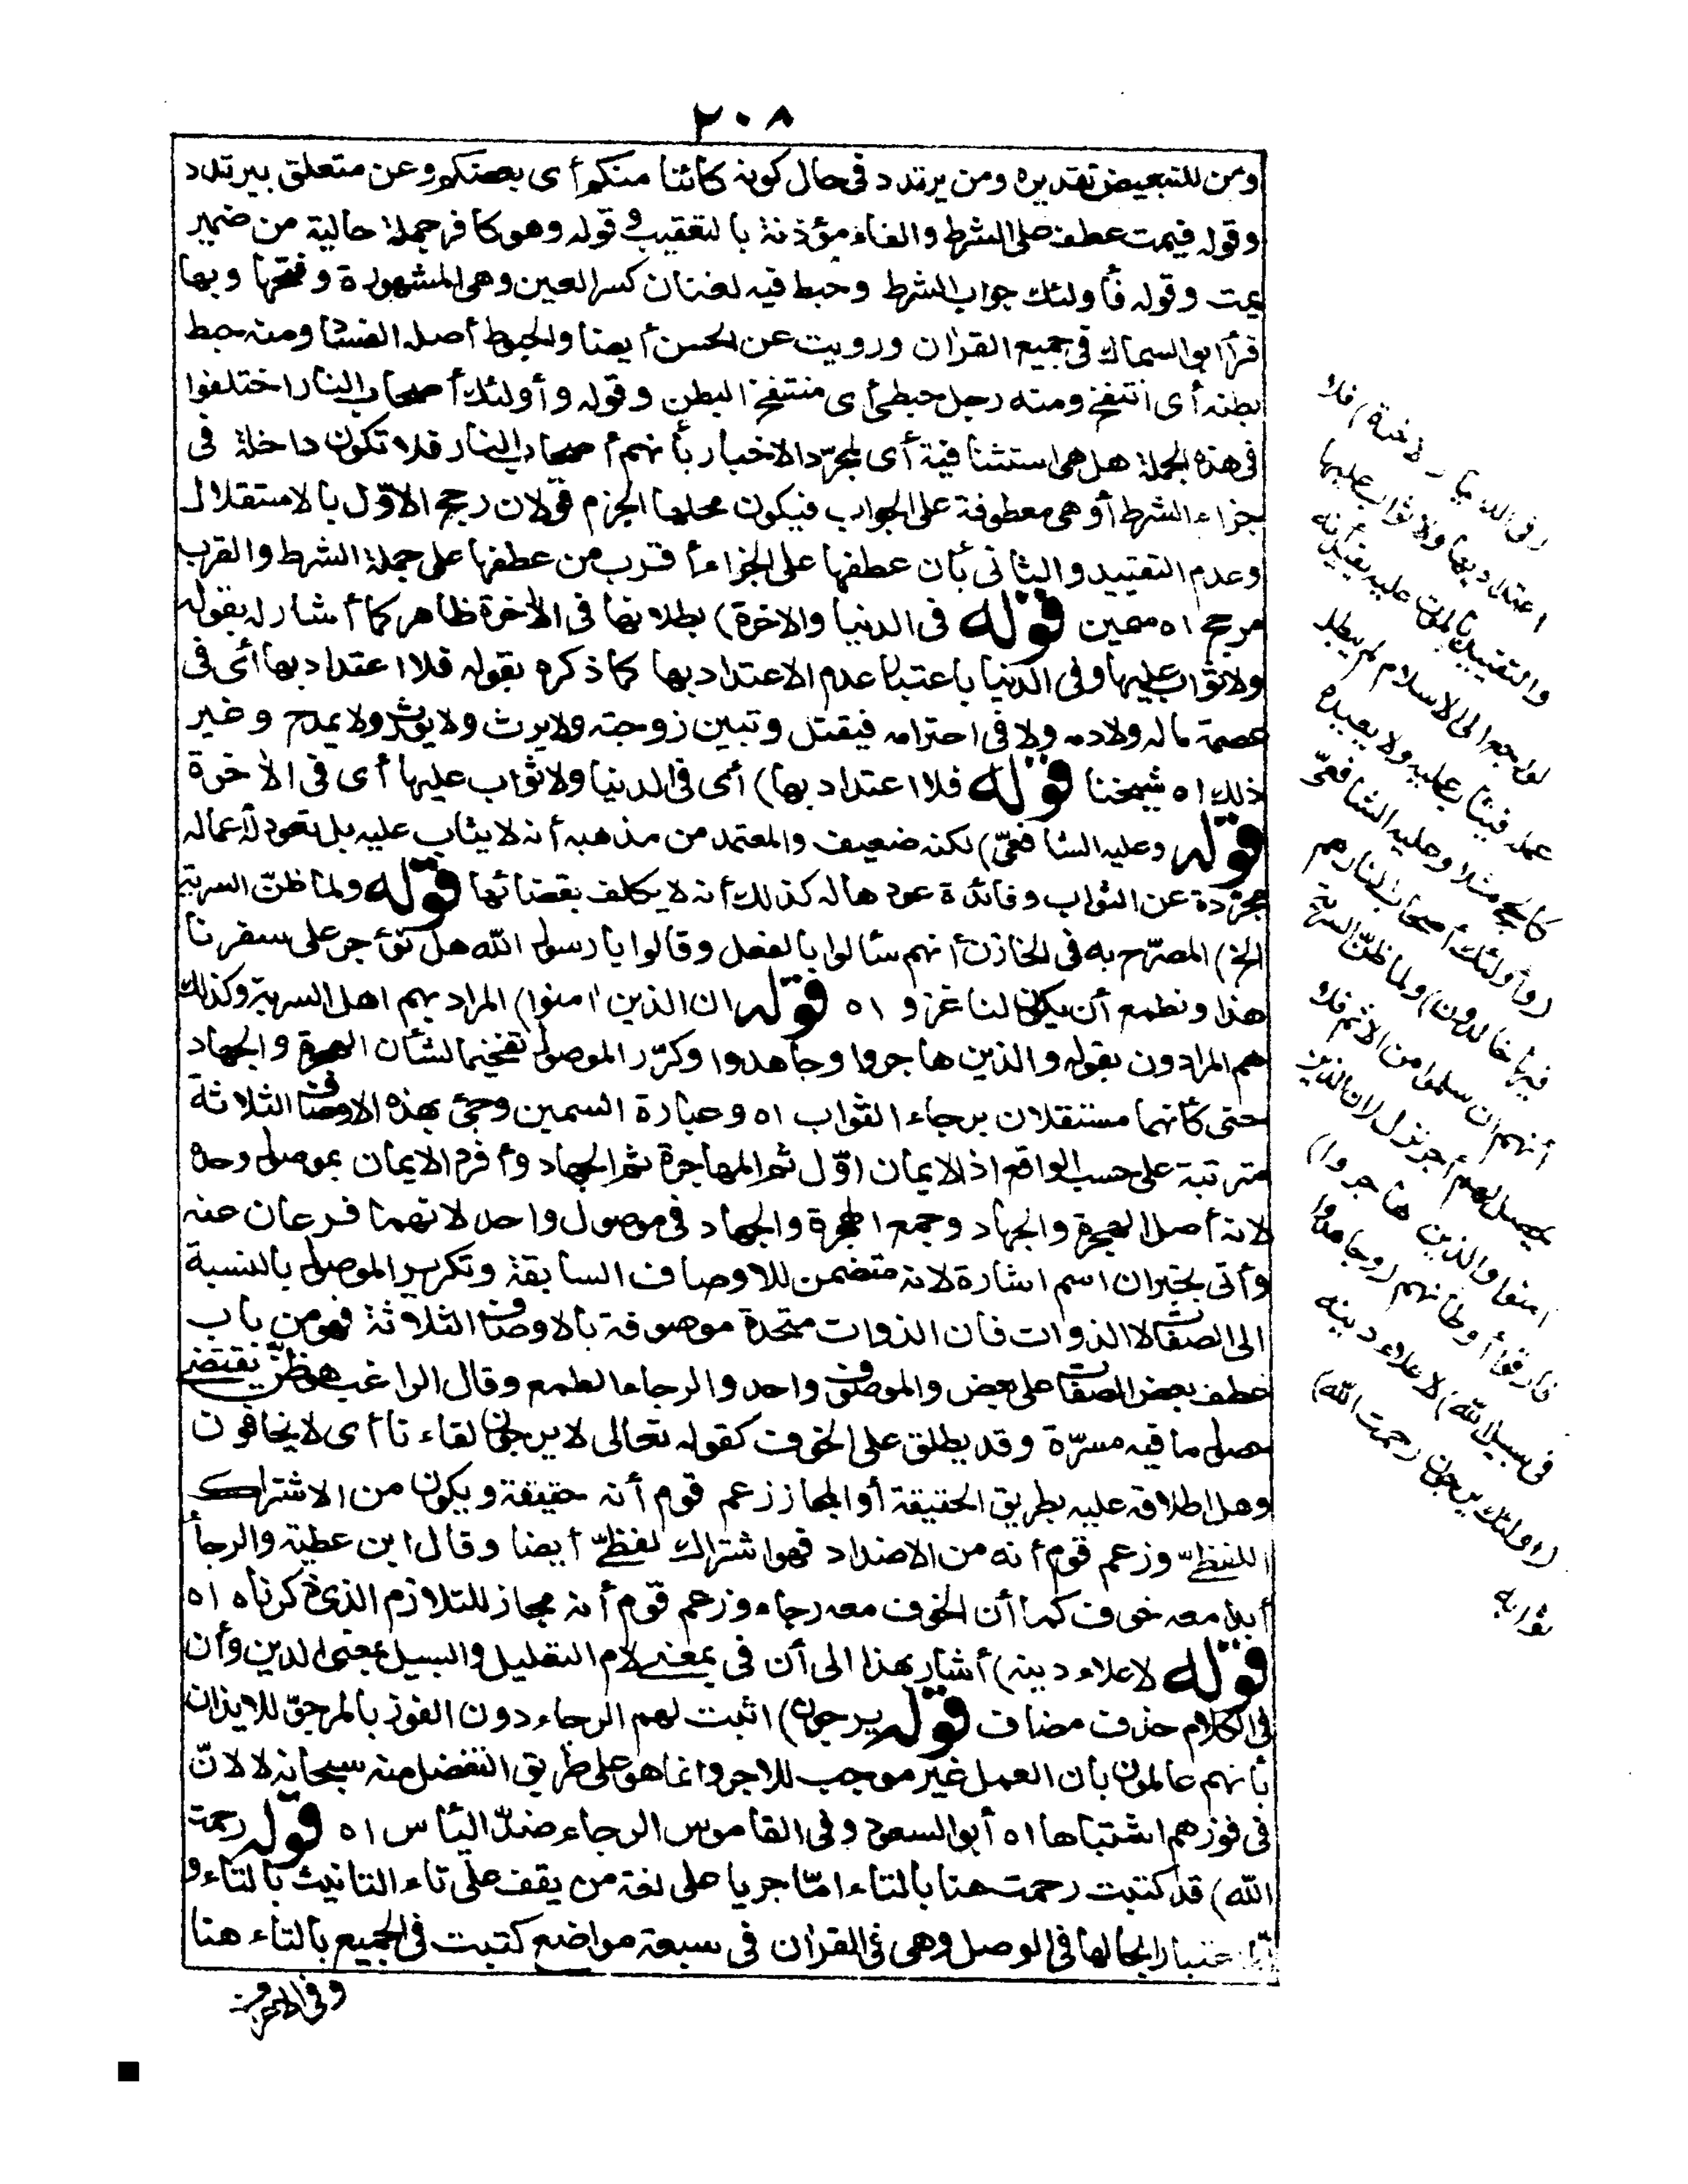 ٢٠٨
ومن للتبعيض تقديره ومن يرتدد في حال كونه كائنا منكم أى بعضكم وعن متعلق بيرتدد
وقوله فيمت عطف على الشرط والفاء مؤذنة بالتعقيب وقوله وهو كافر جملة حالية من ضمير
يمت وقوله فأولئك جواب الشرط وحبط فيه لغتان كسر العين وهى المشهورة وفتحها وبها
قرأ ابو السماك في جميع القرآن ورويت عن الحسن أيضا والحبوط أصله الفساد ومنه حبط
بطنه أى انتفخ ومنه رجل حبطى أى منتفخ البطن وقوله وأولئك أصحاب النار اختلفوا
في هذه الجملة هل هى استئنافية أى لمجرّد الاخبار بأنهم أصحاب النار فلا تكون داخلة فى
جزاء الشرط أو هى معطوفة على الجواب فيكون محلها الجزم قولان رجح الاوّل بالاستقلال
وعدم التقييد والثانى بأن عطفها على الجزاء أقرب من عطفها على جملة الشرط والقرب
مرجح اه سمين قوله فى الدنيا والاخرة) بطلانها فى الآخرة ظاهر كما أشار له بقوله
ولا ثواب عليها وفى الدنيا باعتبار عدم الاعتداد بها كما ذكره بقوله فلا اعتداد بها أى فى
عصمة ماله ولا دمه ولا فى احترامه فيقتل وتبين زوجته ولا يرث ولا يورث ولا يمدح وغير
ذلك اه شيخنا قوله فلا اعتداد بها) أى فى الدنيا ولا ثواب عليها أى فى الآخرة
قوله وعليه الشافعىّ) لكنه ضعيف والمعتمد من مذهبه أنه لا يثاب عليه بل تعود له أعماله
مجرّدة عن الثواب وفائدة عودها له كذلك أنه لا يكلف بقضائها قوله ولما ظنّ السرية
الخ) المصرّح به فى الخازن أنهم سألوا بالفعل وقالوا يا رسول الله هل نؤجر على سفرنا
هذا ونطمع أن يكون لنا غزو اه قوله ان الذين امنوا) المراد بهم اهل السرية وكذلك
هم المرادون بقوله والذين هاجروا وجاهدوا وكرّر الموصول تفخيما لشأن الهجرة والجهاد
حتى كأنهما مستقلان برجاء الثواب اه وعبارة السمين وجئ بهذه الاوصاف الثلاثة
مترتبة على حسب الواقع اذ الايمان اوّل ثم المهاجرة ثم الجهاد وأفرد الايمان بموصول وحده
لانه أصل الهجرة والجهاد وجمع الهجرة والجهاد فى موصول واحد لانهما فرعان عنه
وأتى بخبر ان اسم اشارة لانه متضمن للاوصاف السابقة وتكرير الموصول بالنسبة
الى الصفات لا الذوات فان الذوات متحدة موصوفة بالاوصاف الثلاثة فهو من باب
عطف بعض الصفات على بعض والموصوف واحد والرجاء الطمع وقال الراغب هو ظنّ يقتضى
حصول ما فيه مسرّة وقد يطلق على الخوف كقوله تعالى لا يرجون لقاءنا أى لا يخافون
وهل اطلاقه عليه بطريق الحقيقة أو المجاز زعم قوم أنه حقيقة ويكون من الاشتراك
اللفظىّ وزعم قوم أنه من الاضداد فهو اشتراك لفظىّ أيضا وقال ابن عطية والرجأ
أبدا معه خوف كما أن الخوف معه رجاء وزعم قوم أنه مجاز للتلازم الذى ذكرناه اه
قوله لاعلاء دينه) أشار بهذا الى أن فى بمعنى لام التعليل والسبيل بمعنى الدين وأن
فى الكلام حذف مضاف قوله يرجون) اثبت لهم الرجاء دون الفوز بالمرجوّ للايذان
بأنهم عالمون بأن العمل غير موجب للاجر وانما هو على طريق التفضل منه سبحانه لا لانّ
فى فوزهم اشتباها اه أبو السعود وفى القاموس الرجاء ضدّ اليأس اه قوله رحمت
الله) قد كتبت رحمت هنا بالتاء امّا جريا على لغة من يقف على تاء التانيث بالتاء و
امّا اعتبارا بحالها فى الوصل وهى فى القرآن فى سبعة مواضع كتبت فى الجميع بالتاء هنا
وفى الاعراف
(فى الدنيا والاخرة) فلا
اعتداد بها ولا ثواب عليها
والتقييد بالموت عليه يفيد أنه
لو رجع الى الاسلام لم يبطل
عمله فيثاب عليه ولا يعيده
كالحج مثلا وعليه الشافعىّ
(وأولئك أصحاب النار هم
فيها خالدون) ولما ظنّ السرية
أنهم ان سلموا من الاثم فلا
يحصل لهم أجر نزل (ان الذين
امنوا والذين هاجروا)
فارقوا أوطانهم (وجاهدوا
فى سبيل الله) لاعلاء دينه
(أولئك يرجون رحمت الله)
ثوابه